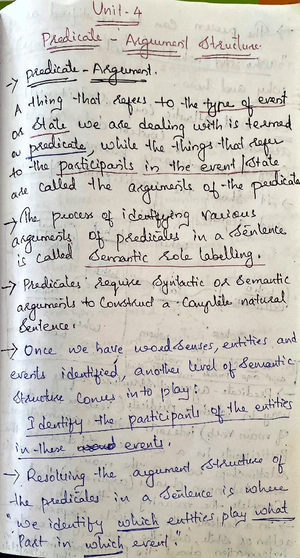 Unit-4
Predicate - Argument Structure
→ Predicate - Argument.
A thing that refers to the type of event
or State we are dealing with is termed
a predicate, while the things that refer
to the participants in the event/state
are called the arguments of the predicate
→ The process of identifying various
arguments of predicates in a sentence
is called Semantic role labelling.
→ Predicates require Syntactic or Semantic
arguments to construct a complete natural
Sentence.
→ Once we have word senses, entities and
events identified, another level of Semantic
structure comes into play:
Identify the participants of the entities
in these events.
→ Resolving the argument structure of
the predicates in a sentence is where
"we identify which entities play what
Part in which event."